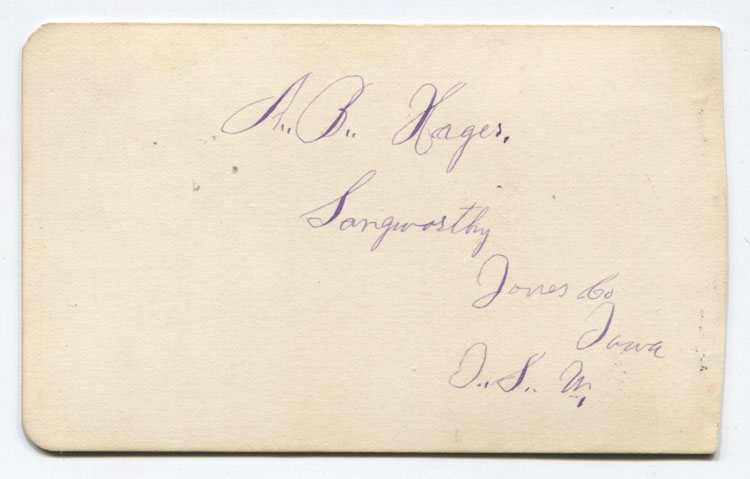 A.. B.. Hager.
Langworthy
Jones Co
Iowa
I.. S.. M.